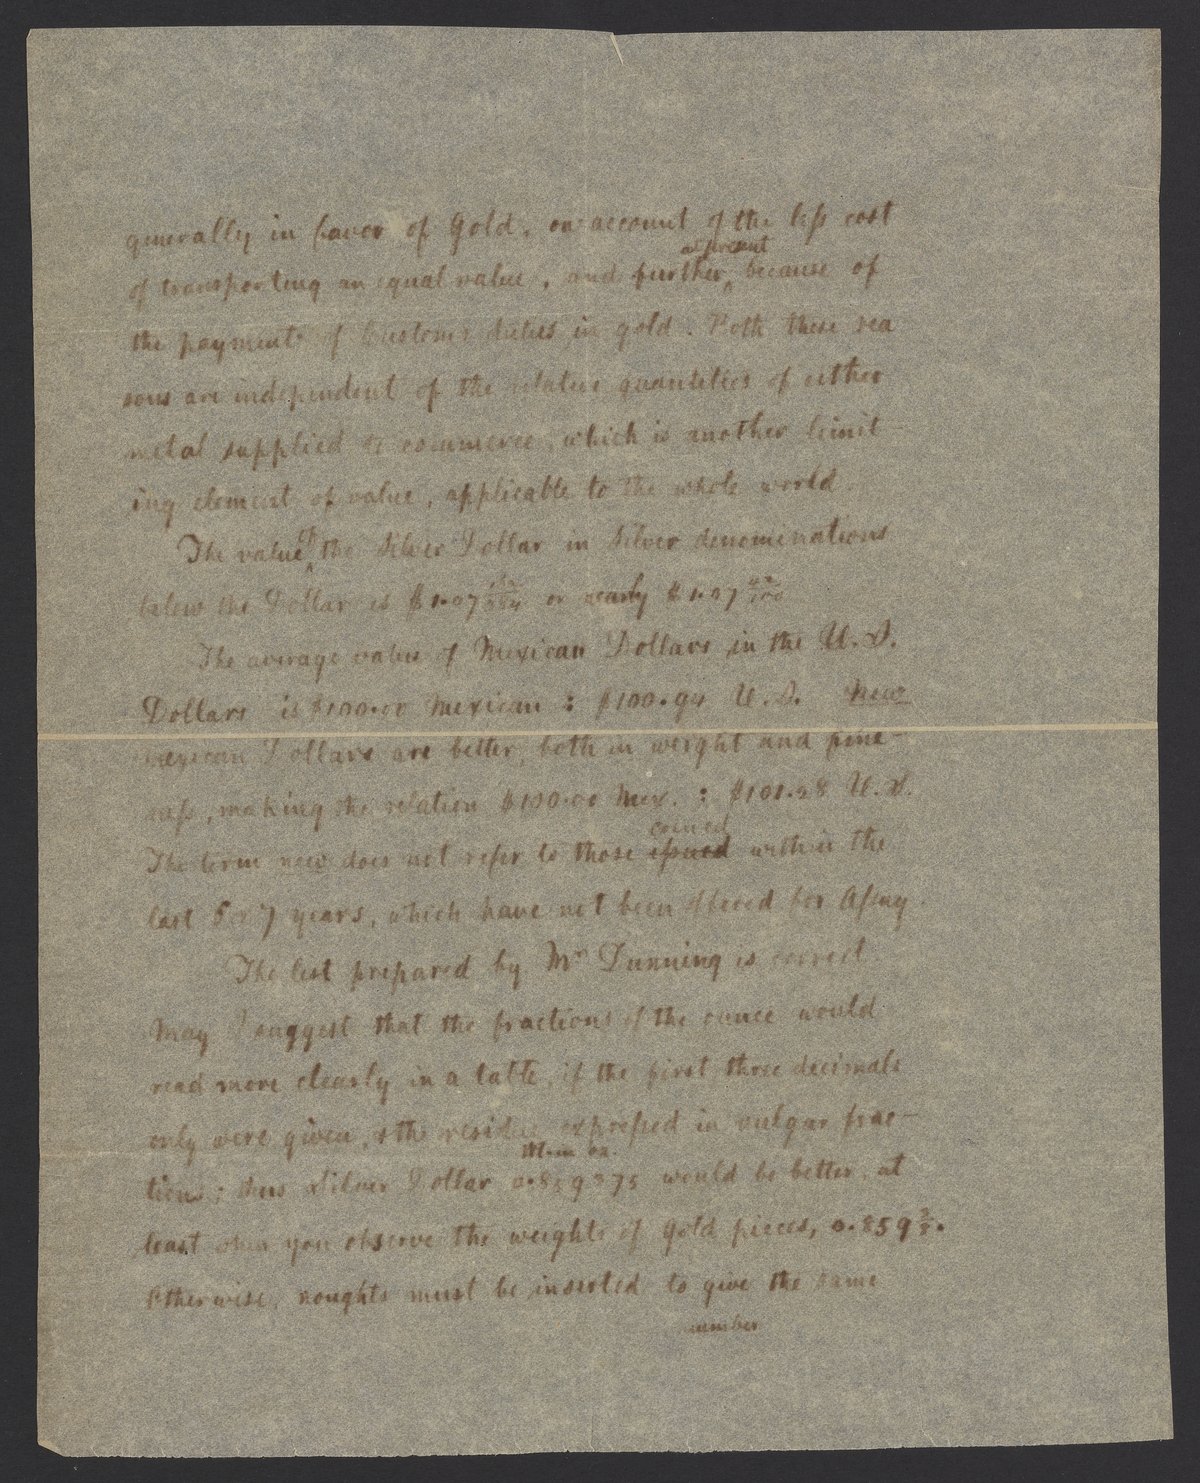 generally in favor of Gold, on account of the less cost
at present
of transporting an equal value, and further, because of
the payment of Customs duties in gold. Both these rea
sons are independent of the relative quantities of either
metal supplied to commerce, which is another limit-
ing element of value, applicable to the whole world.
The value of the Silver Dollar in Silver denominations
below the Dollar is $1.07 or nearly $1.07
The average value of Mexican Dollars in the U.S.
Dollars is $100.00 Mexican : $100.94 U.S. New
Mexican Dollars are better, both in weight and fine-
ness, making the relation $100.00 Mex. : $101.28 U.S.
coined
The term new does not refer to those issued within the
last 5 or 7 years, which have not been offered for Assay.
The list prepared by Mr Dunning is correct.
May I suggest that the fractions of the ounce would
read more clearly in a table, if the first three decimals
only were given, & the residue expressed in vulgar frac-
tions; thus Silver Dollar 0.859375 would be better, at
least when you observe the weights of Gold pieces, 0.859 3/8.
Otherwise, noughts must be inserted to give the same
number